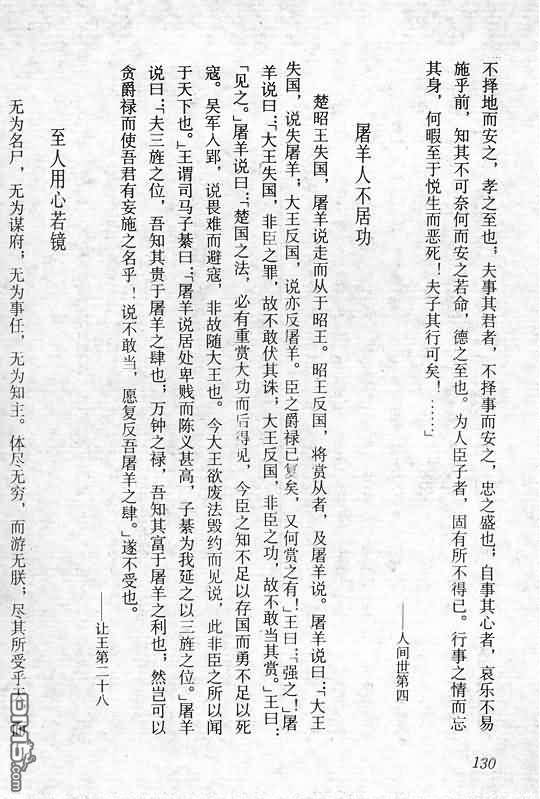 不择地而安之，孝之至也；夫事其君者，不择事而安之，忠之盛也；自事其心者，哀乐不易
施乎前，知其不可奈何而安之若命，德之至也。为人臣子者，固有所不得已。行事之情而忘
其身，何暇至于悦生而恶死！夫子其行可矣！……」
——人间世第四
屠羊人不居功
楚昭王失国，屠羊说走而从于昭王。昭王反国，将赏从者，及屠羊说。屠羊说曰：「大王
失国，说失屠羊；大王反国，说亦反屠羊。臣之爵禄已复矣，又何赏之有！」王曰：「强之！」屠
羊说曰：「大王失国，非臣之罪，故不敢伏其诛；大王反国，非臣之功，故不敢当其赏。」王曰：
「见之。」屠羊说曰：「楚国之法，必有重赏大功而后得见，今臣之知不足以存国而勇不足以死
寇。吴军入郢，说畏难而避寇，非故随大王也。今大王欲废法毁约而见说，此非臣之所以闻
于天下也。」王谓司马子綦曰：「屠羊说居处卑贱而陈义甚高，子綦为我延之以三旌之位。」屠羊
说曰：「夫三旌之位，吾知其贵于屠羊之肆也；万钟之禄，吾知其富于屠羊之利也；然岂可以
贪爵禄而使吾君有妄施之名乎！说不敢当，愿复反吾屠羊之肆。」遂不受也。
——让王第二十八
至人用心若镜
无为名尸，无为谋府；无为事任，无为知主。体尽无穷，而游无朕；尽其所受乎
130